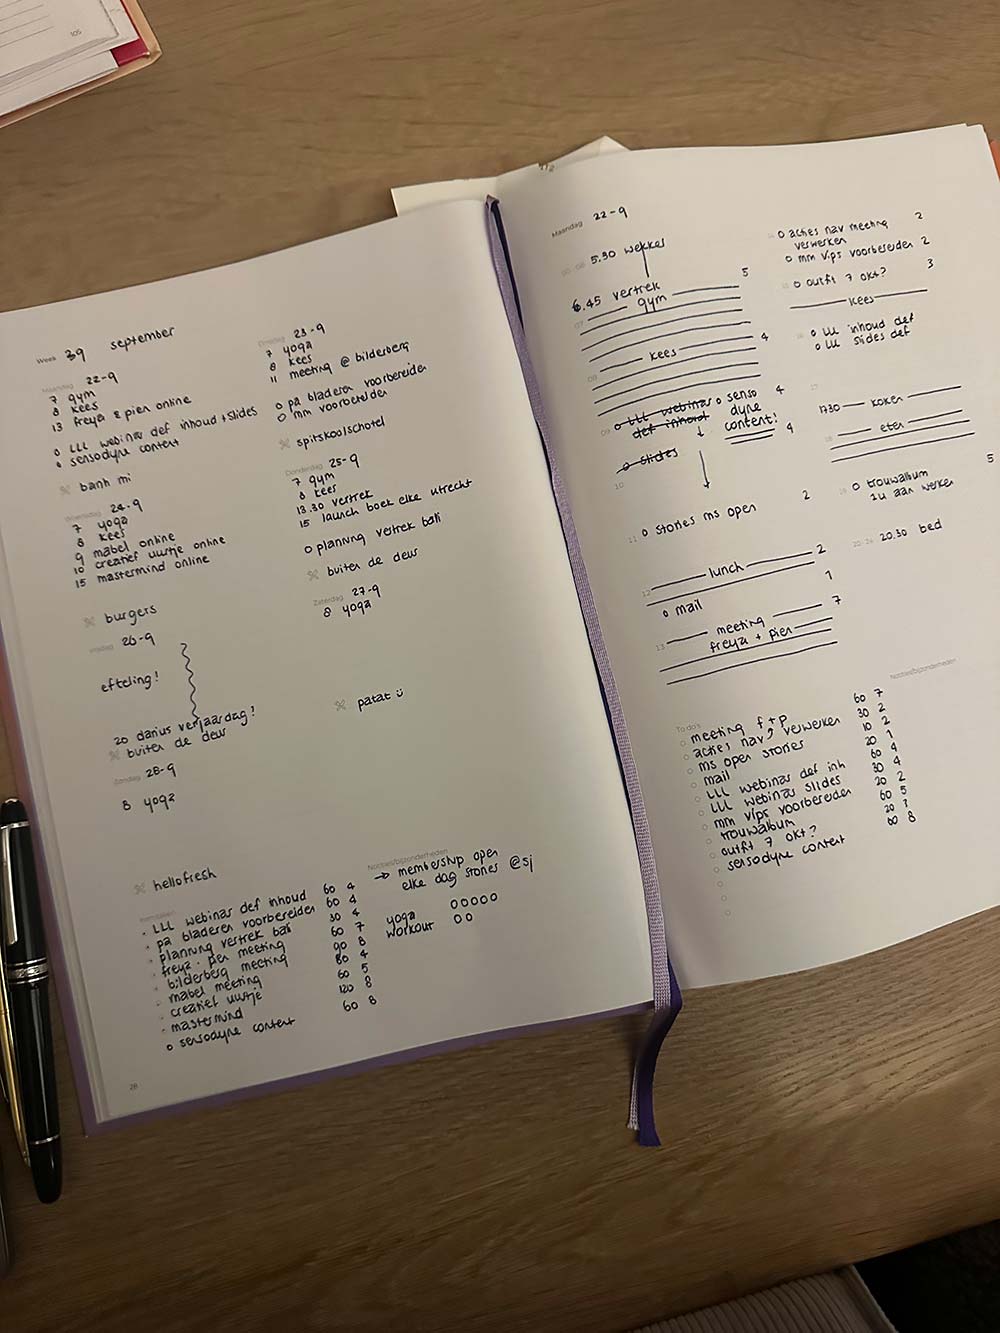 105
Week 39 september
Maandag 22-9
7 gym
8 kees
13 freya & pien online
o LLL webinar def inhoud + slides
o sensodyne content
banh mi
Dinsdag 23-9
7 yoga
8 kees
11 meeting @ bilderberg
o pa bladeren voorbereiden
o mm voorbereiden
spitskoolschotel
Woensdag 24-9
7 yoga
8 kees
9 mabel online
10 creatief uurtje online
15 mastermind online
burgers
Donderdag 25-9
7 gym
8 kees
13.30 vertrek
15 launch boek elke utrecht
o planning vertrek bali
buiten de deur
Vrijdag 26-9
efteling!
20 darius verjaardag!
buiten de deur
Zaterdag 27-9
8 yoga
patat
Zondag 28-9
8 yoga
hellofresh
LLL webinar def inhoud 60 4
pa bladeren voorbereiden 60 4
planning vertrek bali 30 4
freya + pien meeting 60 7
bilderberg meeting 90 8
mabel meeting 60 4
creatief uurtje 60 5
mastermind 120 8
o sensodyne content 60 8
Notities/bijzonderheden
→ membership open
elke dag stories @sj
yoga OOOOO
workout OO
28
Maandag 22-9
5.30 wekker
6.45 vertrek
07 gym 5
08 kees 4
09 o LLL webinar
def inhoud
o senso 4
dyne
content!
o slides 4
10
11 o stories ms open 2
12 lunch 2
o mail 1
13 meeting 7
freya + pien
o acties nav meeting 2
verwerken
o mm vips voorbereiden 2
o outfit 7 okt? 3
kees
o LLL inhoud def
o LLL slides def
1730 koken
eten
o trouwalbum 5
1u aan werken
20.30 bed
To do's
meeting f + p 60 7
acties nav verwerken 30 2
ms open stories 10 2
mail 20 1
LLL webinar def inh 60 4
LLL webinar slides 30 4
mm vips voorbereiden 20 2
trouwalbum 60 5
outfit 7 okt? 20 3
sensodyne content 60 8
Notities/bijzonderheden